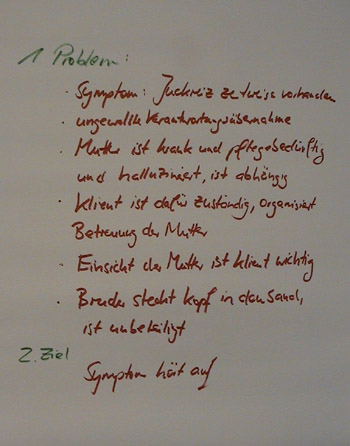 1 Problem:
· Symptom: Juckreiz zeitweise vorhanden
· ungewollte Verantwortungsübernahme
· Mutter ist krank und pflegebedürftig
und halluziniert, ist abhängig
· Klient ist dafür zuständig, organisiert
Betreuung der Mutter
· Einsicht der Mutter ist Klient wichtig
· Bruder steckt Kopf in den Sand,
ist unbeteiligt
2. Ziel
Symptom hört auf